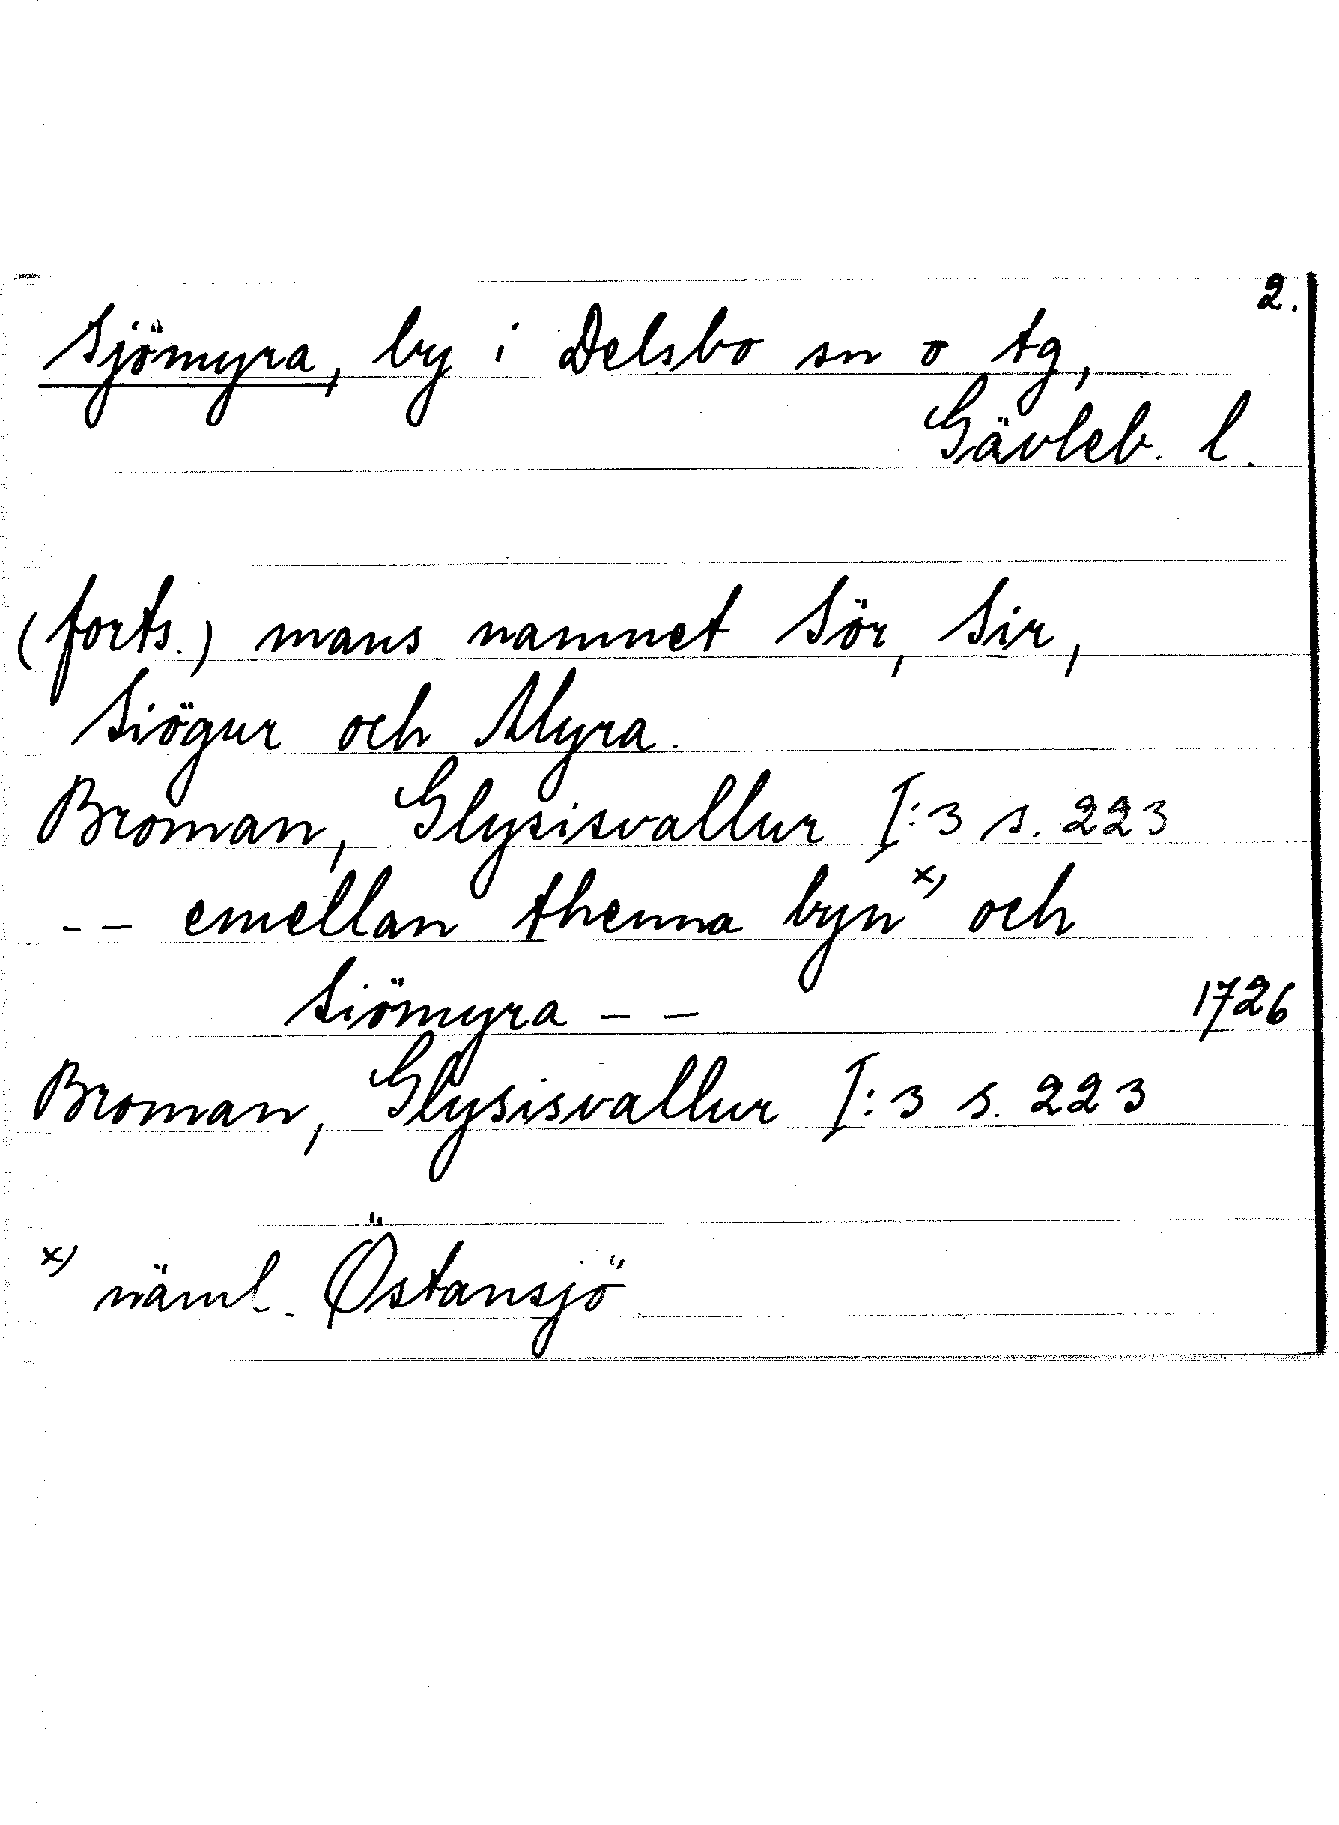 2.
Sjömyra, by i Delsbo sn o tg,
Gävleb. l.
(forts.) mans namnet Sör, Sir,
Siögur och Myra.
Broman, Glysisvallur I:3 s. 223
-- emellan thenna byn x) och
Siömyra -- 1726
Broman, Glysisvallur I:3 s. 223
x) näml. Östansjö